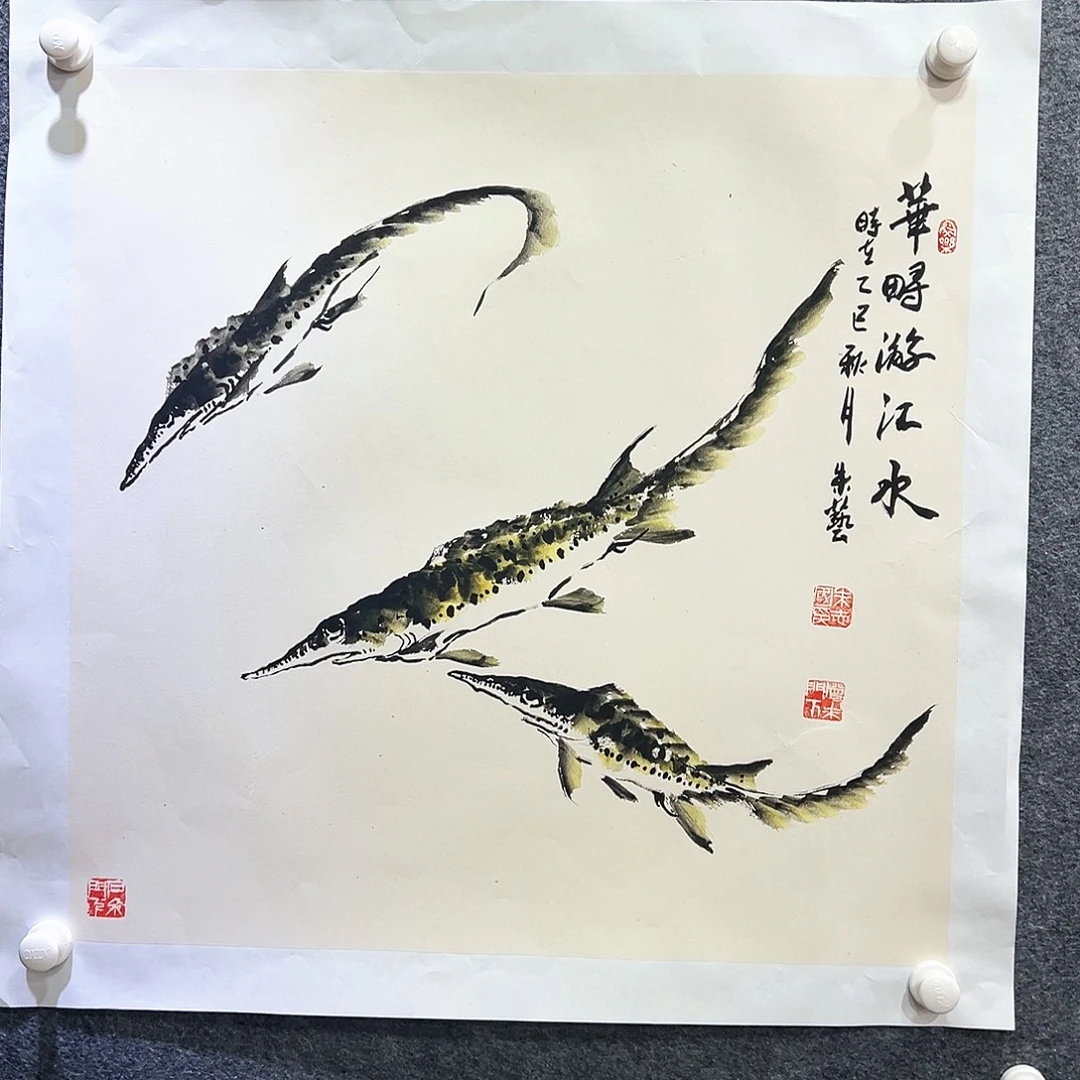 華鲟游江水
時在乙巳秋月 朱藝